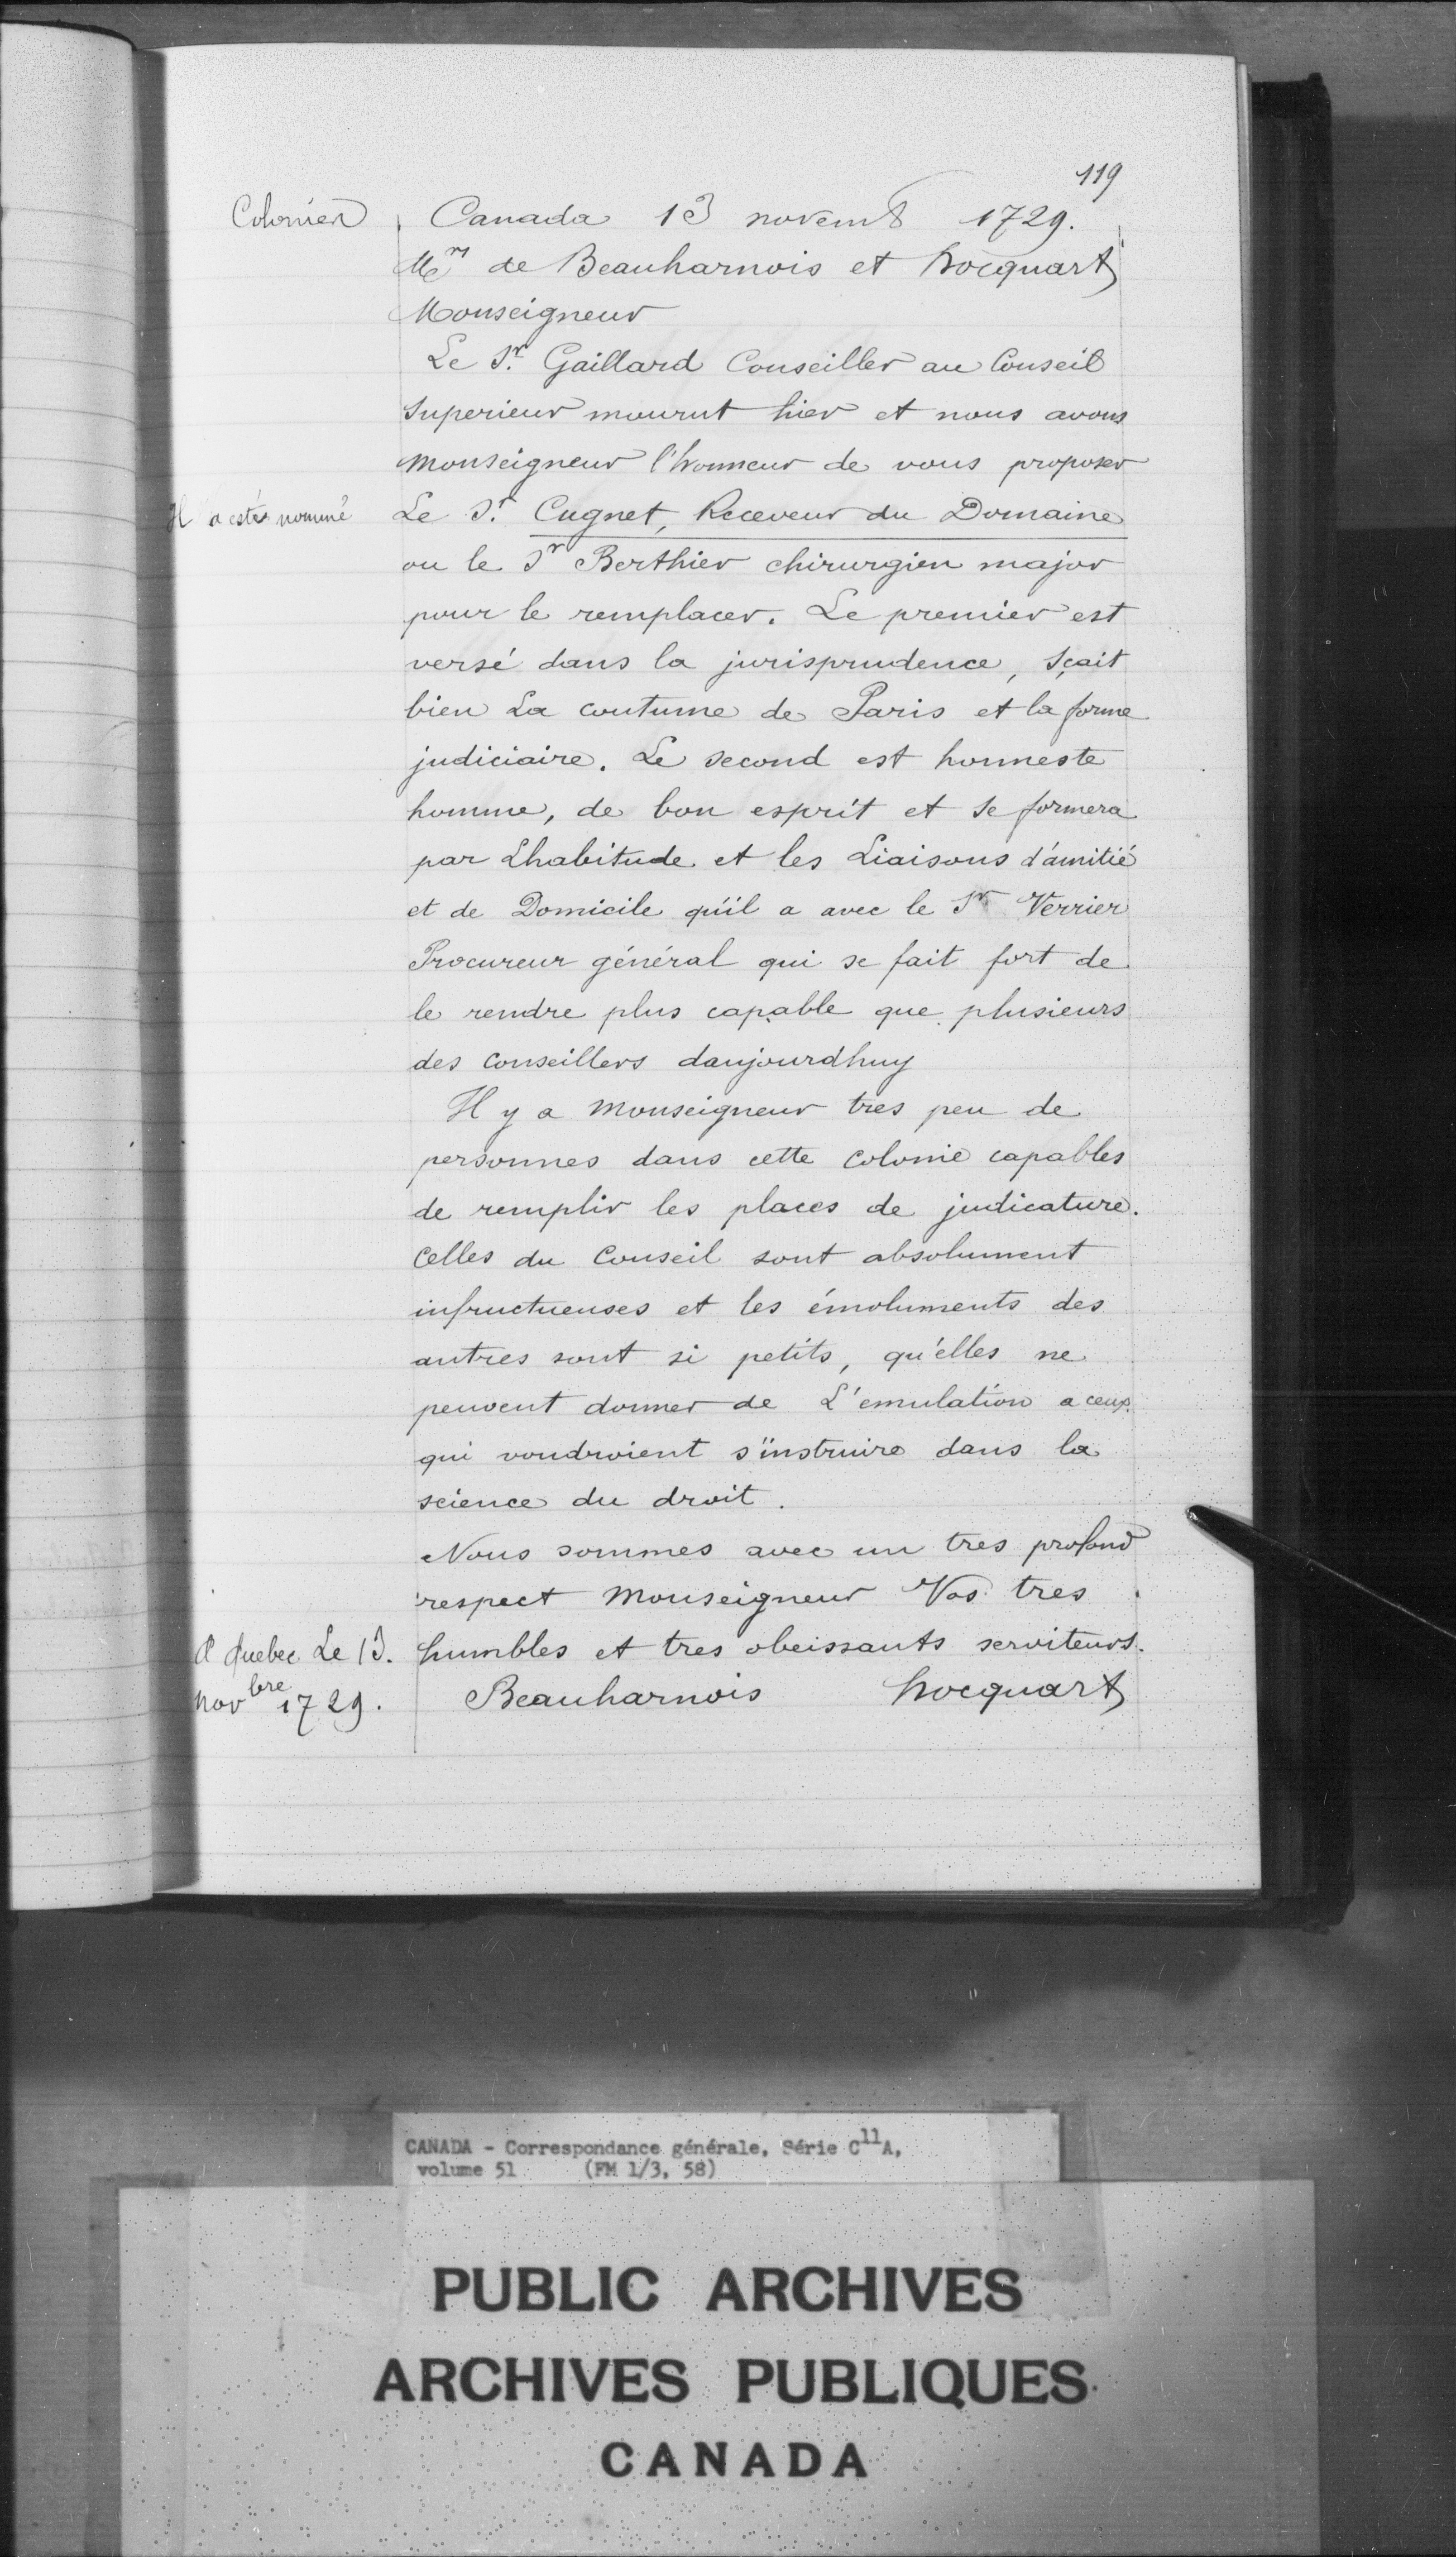 119
Colonies
Canada 13 novemb 1729.
Mrs de Beauharnois et hocquart
Monseigneur
Le Sr. Gaillard Conseiller au Conseil
Superieur mourut hier et nous avons
Monseigneur l'honneur de vous proposer
Il a estés nommé
Le Sr. Cugnet, Receveur du Domaine
ou le Sr Berthier chirurgien major
pour le remplacer. Le premier est
versé dans la jurisprudence, Sçait
bien La coutume de Paris et la forme
judiciaire. Le second est honneste
homme, de bon esprit et se formera
par Lhabitude et les Liaisons d'amitié
et de Domicile qu'il a avec le Sr Verrier
Procureur général qui se fait fort de
le rendre plus capable que plusieurs
des conseillers daujourdhuy
Il y a Monseigneur tres peu de
personnes dans cette colonie capables
de remplir les places de judicature.
Celles du Conseil sont absolument
infructueuses et les émoluments des
autres sont si petits, qu'elles ne
peuvent donner de L'emulation a ceux
qui voudroient s'instruire dans la
science du droit.
Nous sommes avec un tres profond
respect Monseigneur Vos tres
humbles et tres obeissants serviteurs.
A Quebec Le 13.
Novbre 1729.
Beauharnois hocquart
CANADA - Correspondance générale, Série C11A,
volume 51 (FM 1/3, 58)
PUBLIC ARCHIVES
ARCHIVES PUBLIQUES
CANADA